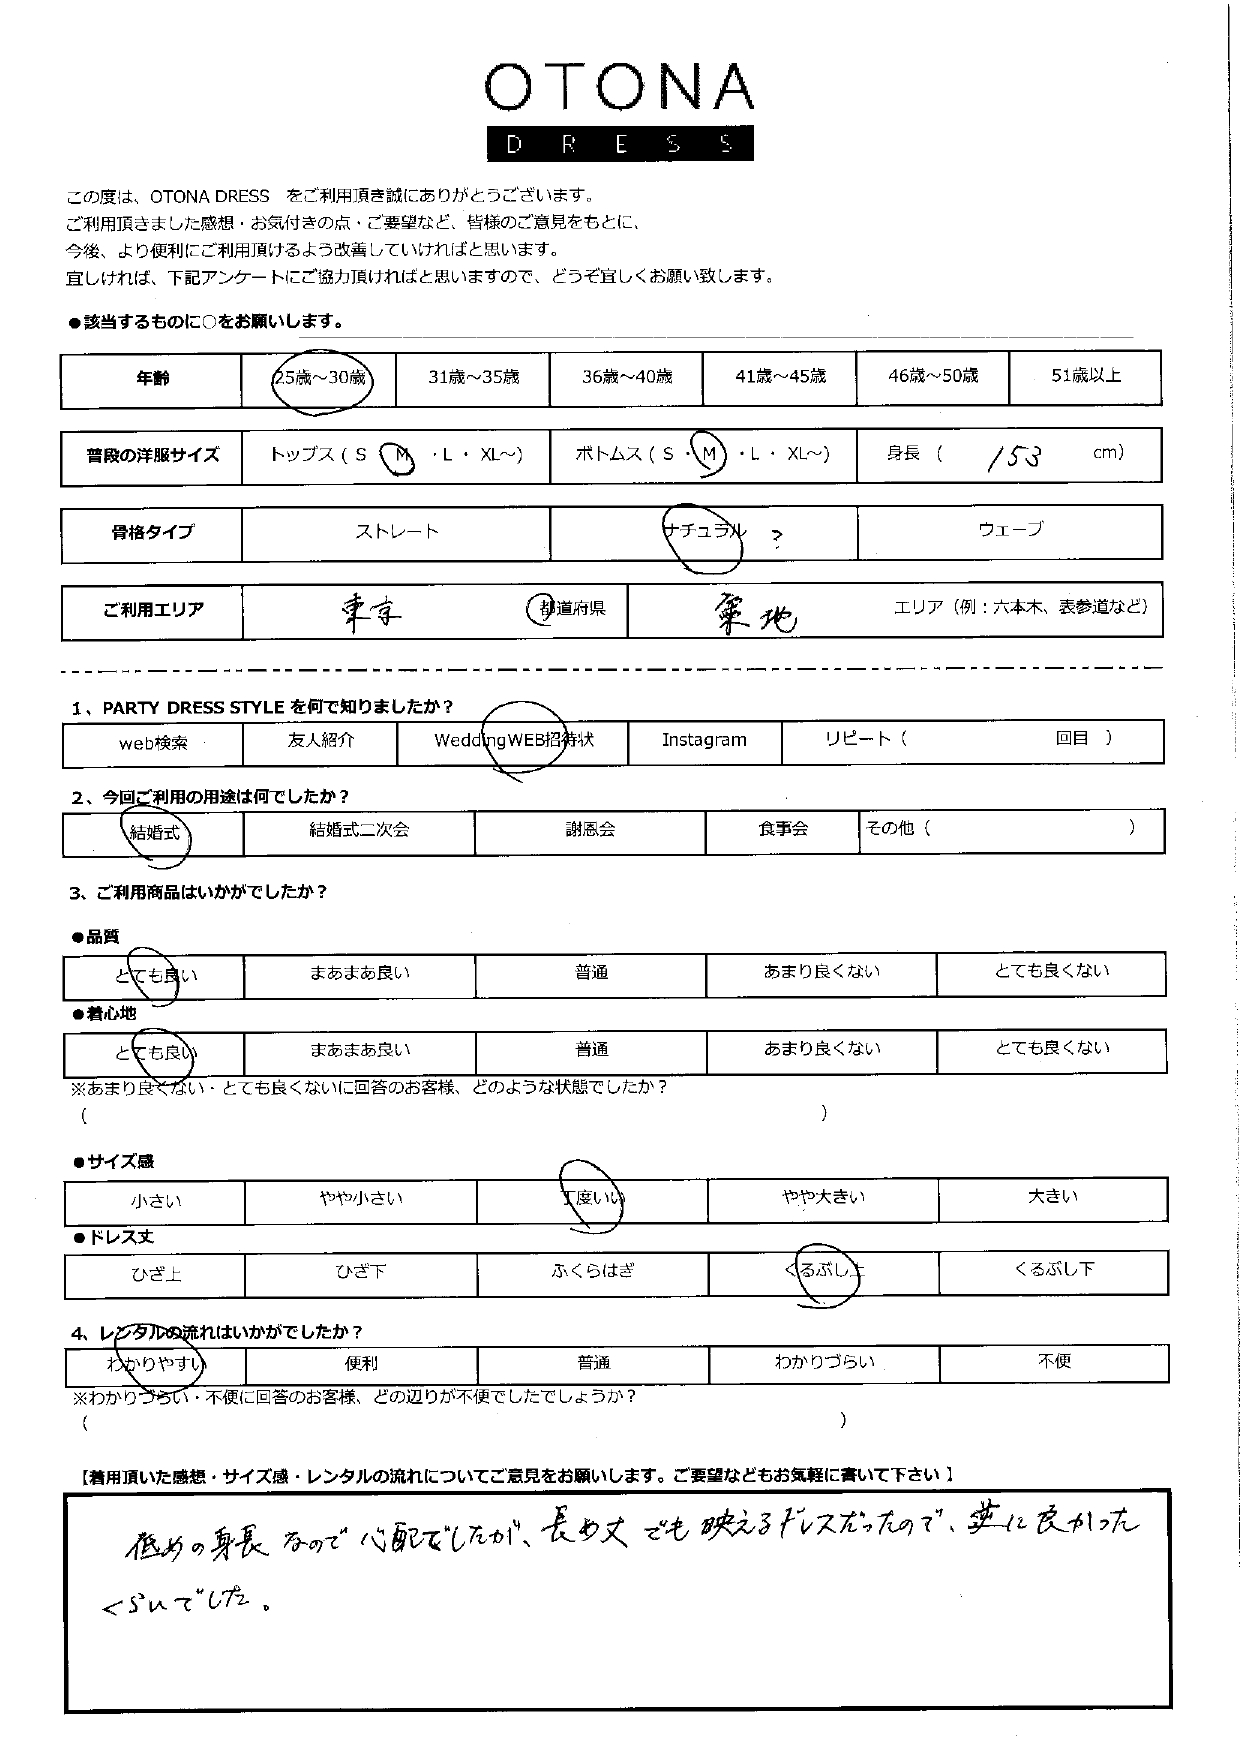 OTONA
DRESS
この度は、OTONA DRESS　をご利用頂き誠にありがとうございます。
ご利用頂きました感想・お気付きの点・ご要望など、皆様のご意見をもとに、
今後、より便利にご利用頂けるよう改善していければと思います。
宜しければ、下記アンケートにご協力頂ければと思いますので、どうぞ宜しくお願い致します。
●該当するものに○をお願いします。
年齢 25歳～30歳 31歳～35歳 36歳～40歳 41歳～45歳 46歳～50歳 51歳以上
普段の洋服サイズ トップス（ S M ・L ・ XL～） ボトムス（ S ・M ・L ・ XL～） 身長 （ 153 cm）
骨格タイプ ストレート ナチュラル ? ウェーブ
ご利用エリア 東京 都道府県 築地 エリア（例：六本木、表参道など）
1、PARTY DRESS STYLE を何で知りましたか？
web検索 友人紹介 WeddingWEB招待状 Instagram リピート（ 回目 ）
2、今回ご利用の用途は何でしたか？
結婚式 結婚式二次会 謝恩会 食事会 その他（ ）
3、ご利用商品はいかがでしたか？
●品質
とても良い まあまあ良い 普通 あまり良くない とても良くない
●着心地
とても良い まあまあ良い 普通 あまり良くない とても良くない
※あまり良くない・とても良くないに回答のお客様、どのような状態でしたか？
（ ）
●サイズ感
小さい やや小さい 丁度いい やや大きい 大きい
●ドレス丈
ひざ上 ひざ下 ふくらはぎ くるぶし上 くるぶし下
4、レンタルの流れはいかがでしたか？
わかりやすい 便利 普通 わかりづらい 不便
※わかりづらい・不便に回答のお客様、どの辺りが不便でしたでしょうか？
（ ）
【着用頂いた感想・サイズ感・レンタルの流れについてご意見をお願いします。ご要望などもお気軽に書いて下さい 】
低めの身長なので心配でしたが、長め丈でも映えるドレスだったので、逆に良かった
くらいでした。